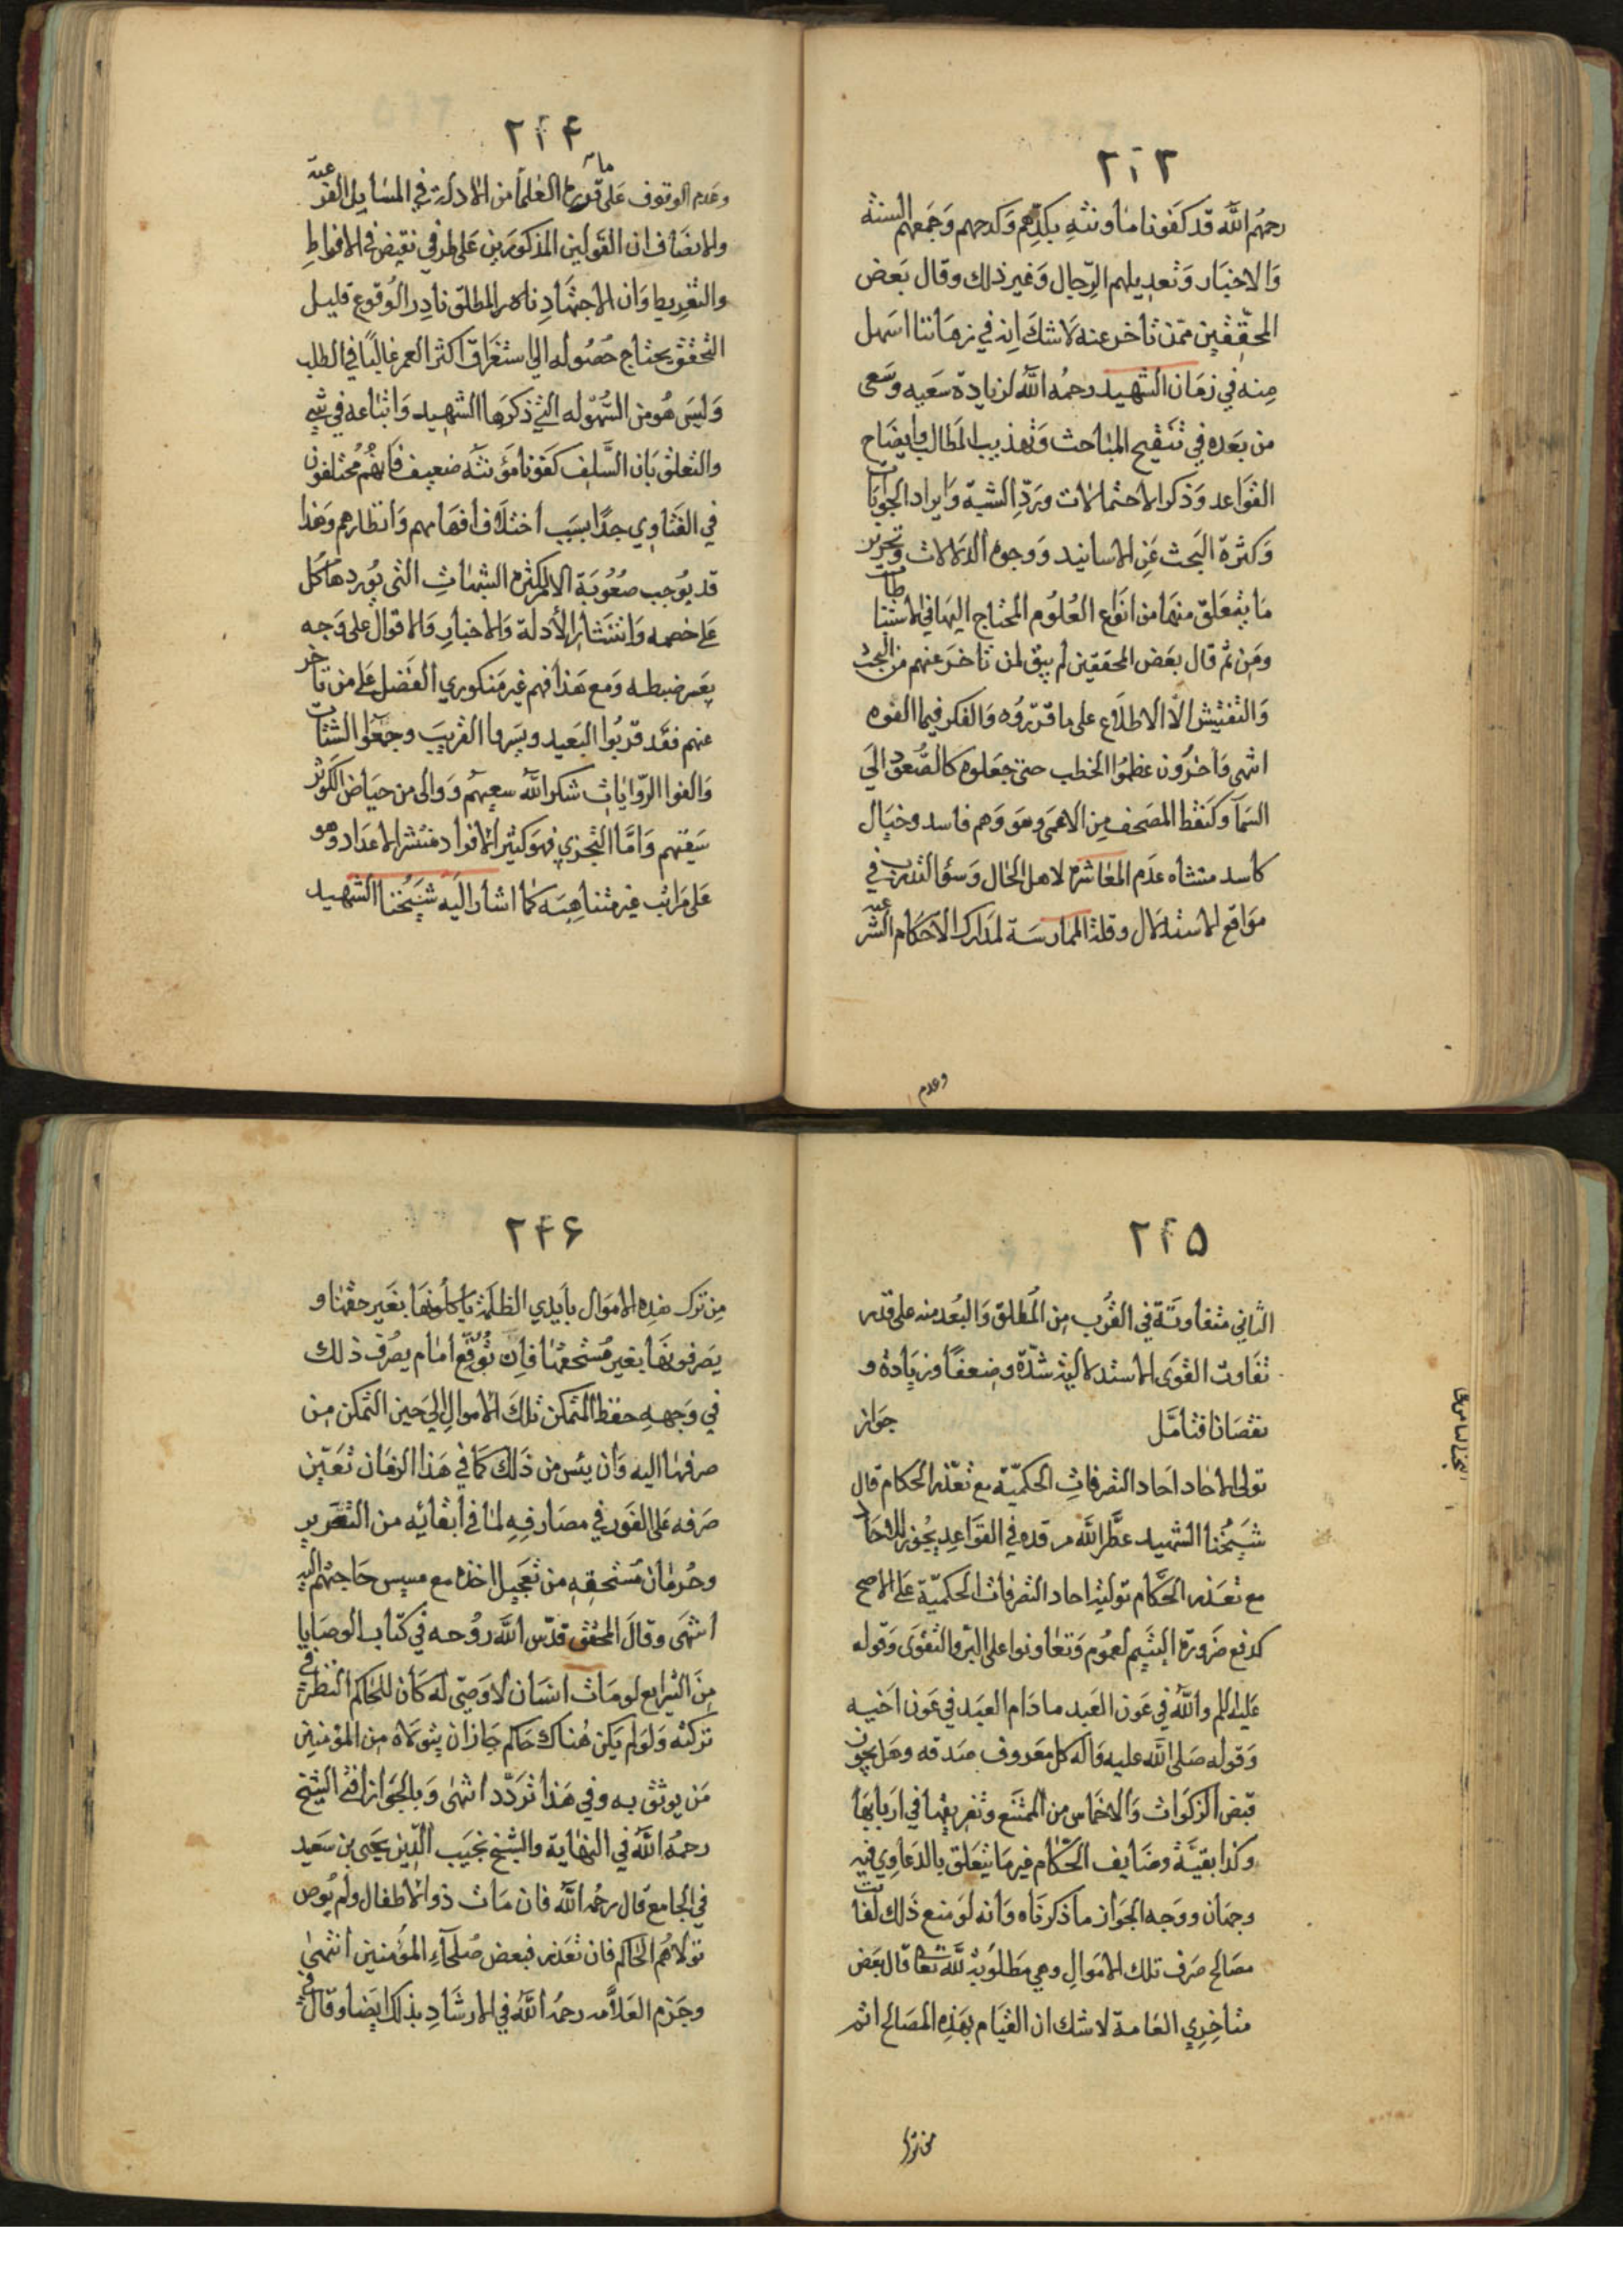 ٢٤٣
رحمهم الله قد كفونا ماونته بكدهم وكدحهم وجمعهم السنة
والاخبار وتعديلهم الرجال وغير ذلك وقال بعض
المحققين ممن تاخر عنه لا شك انه في زماننا اسهل
منه في زمان الشهيد رحمه الله لزيادة سعيه وسعى
من بعده في تنقيح المباحث وتهذيب المطالب وايضاح
القواعد وذكر الاحتمالات ورد الشبه وايراد الجوابات
وكثرة البحث عن الاسانيد ووجوه الدلالات وتحرير
ما يتعلق منها من انواع العلوم المحتاج اليها في الاستنباطات
ومن ثم قال بعض المحققين لم يبق لمن تاخر عنهم من البحث
والتفتيش الا الاطلاع على ما قرروه والفكر فيما الفوه
انتهى واخرون عظموا الخطب حتى جعلوه كالصعود الى
السمآ وكنقط المصحف من الاعمى وهو وهم فاسد وخيال
كاسد منشاه عدم المعاشرة لاهل الحال وسؤ التدرب في
مواقع الاستدلال وقلة الممارسة لمدارك الاحكام الشرعيه
وعدم
٢٤٤
وعدم الوقوف على ما قرره العلمآ من الادلة في المسايل الفرعيه
والانصاف ان القولين المذكورين على طرفي نقيض في الافراط
والتفريط وان الاجتهاد المطلق نادر الوقوع قليل
التحقق يحتاج حصوله الى استغراق اكثر العمر غالبًا في الطلب
وليس هو من السهوله التي ذكرها الشهيد واتباعه في شي
والتعلق بان السلف كفونا مؤنته ضعيف فانهم مختلفون
في الفتاوي جدًا بسبب اختلاف افهامهم وانظارهم وهذا
قد يوجب صعوبة الامر لكثرة الشبهات التى يوردها كل
على خصمه وانتشار الأدلة والاخبار والاقوال على وجه
يعسر ضبطه ومع هذا فهم غير منكوري الفضل على من تاخر
عنهم فقد قربوا البعيد ويسروا الغريب وجمعوا الشتات
والفوا الروايات شكر الله سعيهم ووالى من حياض الكوثر
سقيهم واما التجزي فهو كثير الافراد منتشر الاعداد وهو
على مراتب غير متناهيه كما اشار اليه شيخنا الشهيد
٢٤٥
الثاني متفاوتة في القرب من المطلق والبعد منه على قدر
تفاوت القوى الاستدلاليه شدة وضعفًا وزيادة و
نقصانا فتامل جواز
تولى الاحاد احاد التصرفات الحكمية مع تعذر الحكام قال
شيخنا الشهيد عطر الله مرقده في القواعد يجوز للاحاد
مع تعذر الحكام تولية احاد التصرفات الحكمية على الاصح
كدفع ضرورة اليتيم لعموم وتعاونوا على البر والتقوى وقوله
عليه السلم والله في عون العبد ما دام العبد في عون اخيه
وقوله صلى الله عليه واله كل معروف صدقه وهل يجوز
قبض الزكوات والاخماس من الممتنع وتفريقها في اربابها
وكذا بقية وضايف الحكام غير ما يتعلق بالدعاوي فيه
وجهان ووجه الجواز ما ذكرناه وانه لو منع ذلك لفاتت
مصالح صرف تلك الاموال وهي مطلوبة لله تعا قال بعض
متاخري العامة لا شك ان القيام بهذه المصالح اتم
من ترك
٢٤٦
من ترك هذه الاموال بايدي الظلمة ياكلونها بغير حقها و
يصرفونها بغير مستحقها فان توقع امام يصرف ذلك
في وجهه حفظ المتمكن تلك الاموال الي حين التمكن من
صرفها اليه وان يئس من ذلك كما في هذا الزمان تعين
صرفه على الفور في مصارفه لما في ابقائه من التغرير
وحرمان مستحقه من تعجيل اخذه مع مسيس حاجتهم اليه
انتهى وقال المحقق قدس الله روحه في كتاب الوصايا
من الشرايع لو مات انسان لا وصي له كان للحاكم النظر في
تركته ولو لم يكن هناك حاكم جاز ان يتولاه من المؤمنين
من يوثق به وفي هذا تردد انتهى وبالجواز افتى الشيخ
رحمه الله في النهاية والشيخ نجيب الدين يحيى بن سعيد
في الجامع قال رحمه الله فان مات ذو الاطفال ولم يوص
تولاهم الحاكم فان تعذر فبعض صلحآء المؤمنين انتهى
وجزم العلامه رحمه الله في الارشاد بذلك ايضا وقال في